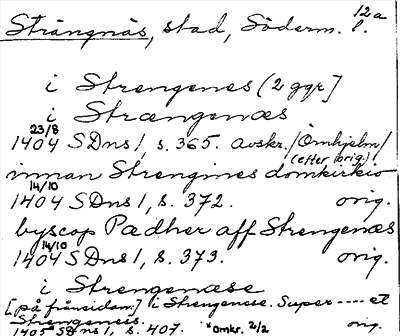 12a
Strängnäs, stad, Söderm. l.
i Strengenes (2 ggr]
i Strængenæs
23/8
1404 SDns 1, s. 365. avskr. /Örnhjelm/
(efter orig.)
innan Strengines domkirkio
14/10
1404 SDns 1, s. 372. orig.
byscop Pædher aff Strengenæs
14/10
1404 SDns 1, s. 373. orig.
i Strengenæse
[på frånsidan:] i Strengenese. Super ---- et
Strengeneis.
1405* SDns 1, s. 407. *Omkr. 2/2 orig.